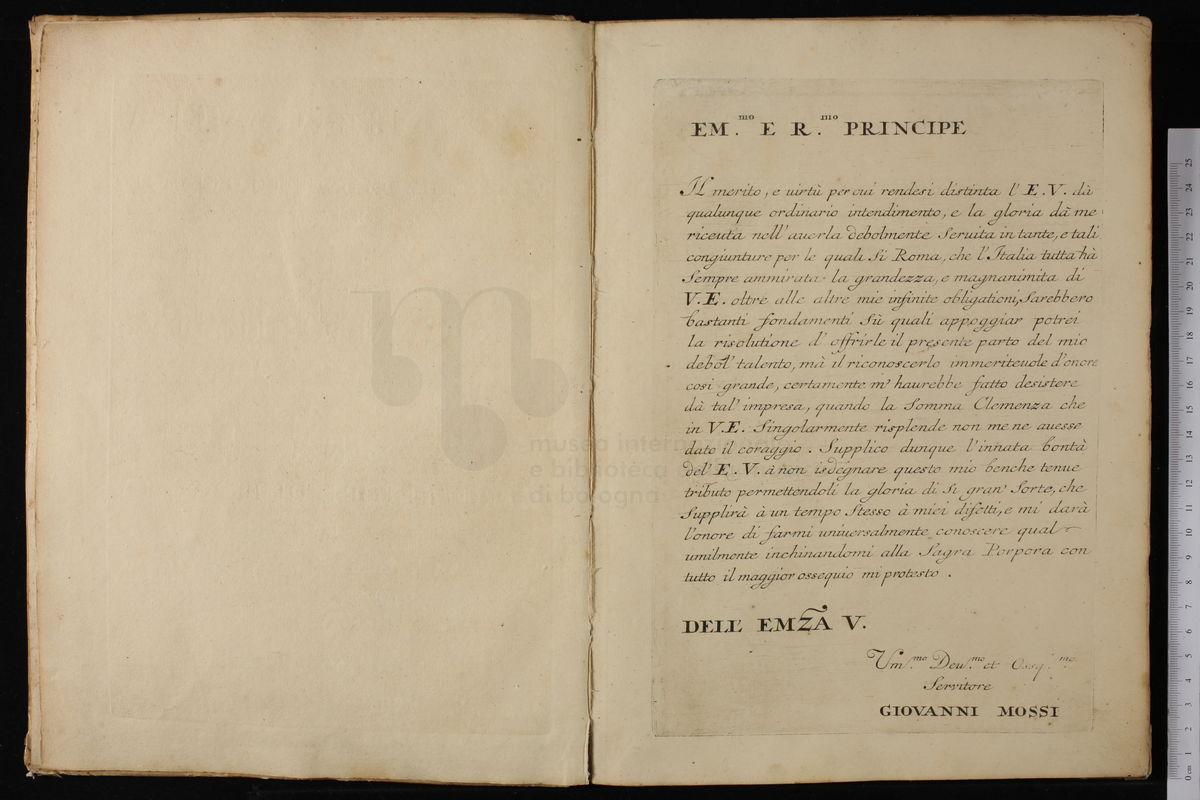 EM.mo E R.mo PRINCIPE
Il merito, e uirtù per cui rendesi distinta l' E.V. dà
qualunque ordinario intendimento, e la gloria dà me
riceuta nell' auerla debolmente Seruita in tante, e tali
congiunture per le quali Si Roma, che l'Italia tutta hà
Sempre ammirata la grandezza, e magnanimita di
V.E. oltre alle altre mie infinite obligationi, Sarebbero
bastanti fondamenti Sù quali appoggiar potrei
la risolutione d' offrirle il presente parto del mio
debol' talento, mà il riconoscerlo immeriteuole d'onore
cosi grande, certamente m' haurebbe fatto desistere
dà tal' impresa, quando la Somma Clemenza che
in V.E. Singolarmente risplende non me ne auesse
dato il coraggio. Supplico dunque l'innata bontà
del' E.V. à non isdegnare questo mio benche tenue
tributo permettendoli la gloria di Si gran' Sorte, che
Supplirà à un tempo Stesso à miei difetti, e mi darà
l'onore di farmi uniuersalmente conoscere qual
umilmente inchinandomi alla Sagra Porpora con
tutto il maggior ossequio mi protesto.
DELL' EMZA V.
Um.mo Deu.mo et Ossq.mo
Servitore
GIOVANNI MOSSI
museo internazionale
e biblioteca
di bologna